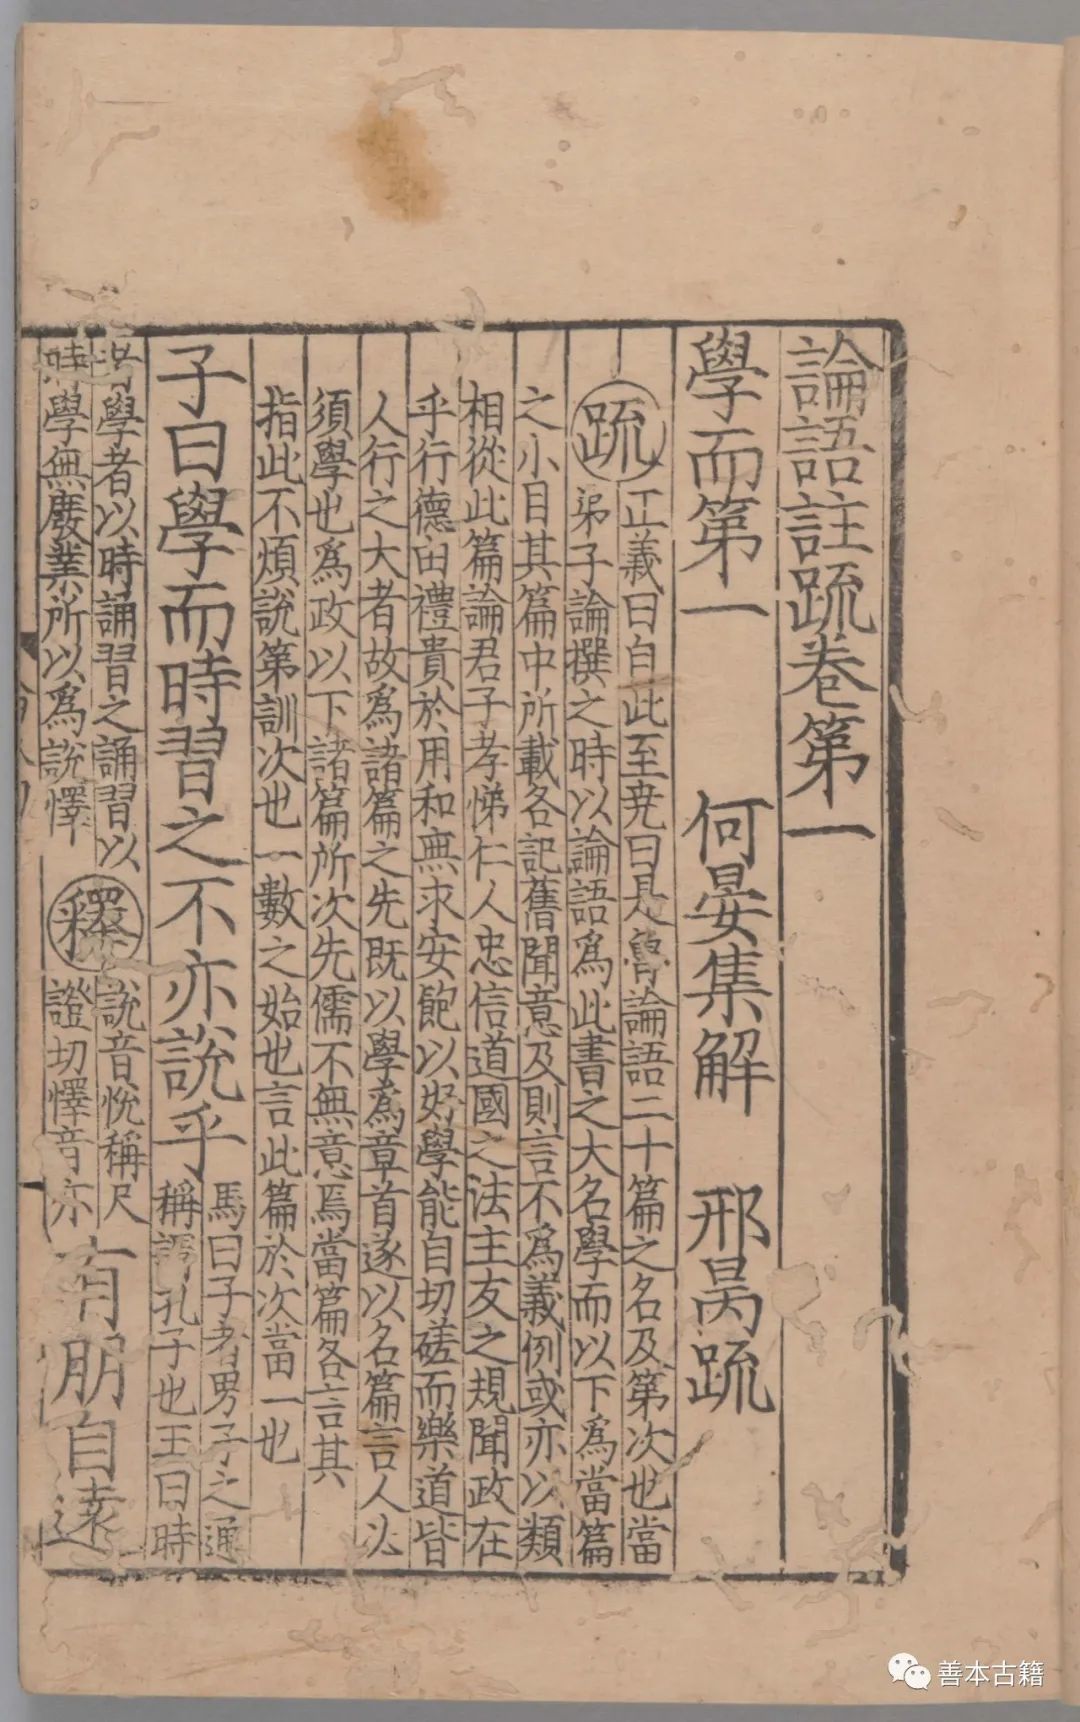 論語註疏卷第一
學而第一 何晏集解 邢昺疏
疏 正義曰自此至堯曰是魯論語二十篇之名及第次也當
弟子論撰之時以論語爲此書之大名學而以下爲當篇
之小目其篇中所載各記舊聞意及則言不爲義例或亦以類
相從此篇論君子孝悌仁人忠信道國之法主友之規聞政在
乎行德由禮貴於用和無求安飽以好學能自切磋而樂道皆
人行之大者故爲諸篇之先既以學爲章首遂以名篇言人必
須學也爲政以下諸篇所次先儒不無意焉當篇各言其
指此不煩說第訓次也一數之始也言此篇於次當一也
子曰學而時習之不亦說乎
馬曰子者男子之通
稱謂孔子也王曰時
者學者以時誦習之誦習以
時學無廢業所以爲說懌
釋
說音悅稱尺
證切懌音亦
有朋自遠
善本古籍